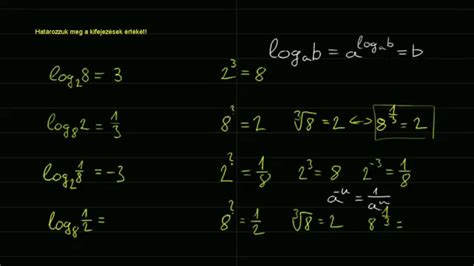 Határozzuk meg a kifejezések értékét!
log_a b = a^{log_a b} = b
log₂8 = 3    2³ = 8
log₈2 = 1/3    8^? = 2    ∛8 = 2 <-> 8^{1/3} = 2
log₂ 1/8 = -3    2^? = 1/8    2³ = 8    2^{-3} = 1/8
a^{-n} = 1/a^n
log₈ 1/2 =    8^? = 1/2    ∛8 = 2    8^{1/3} =